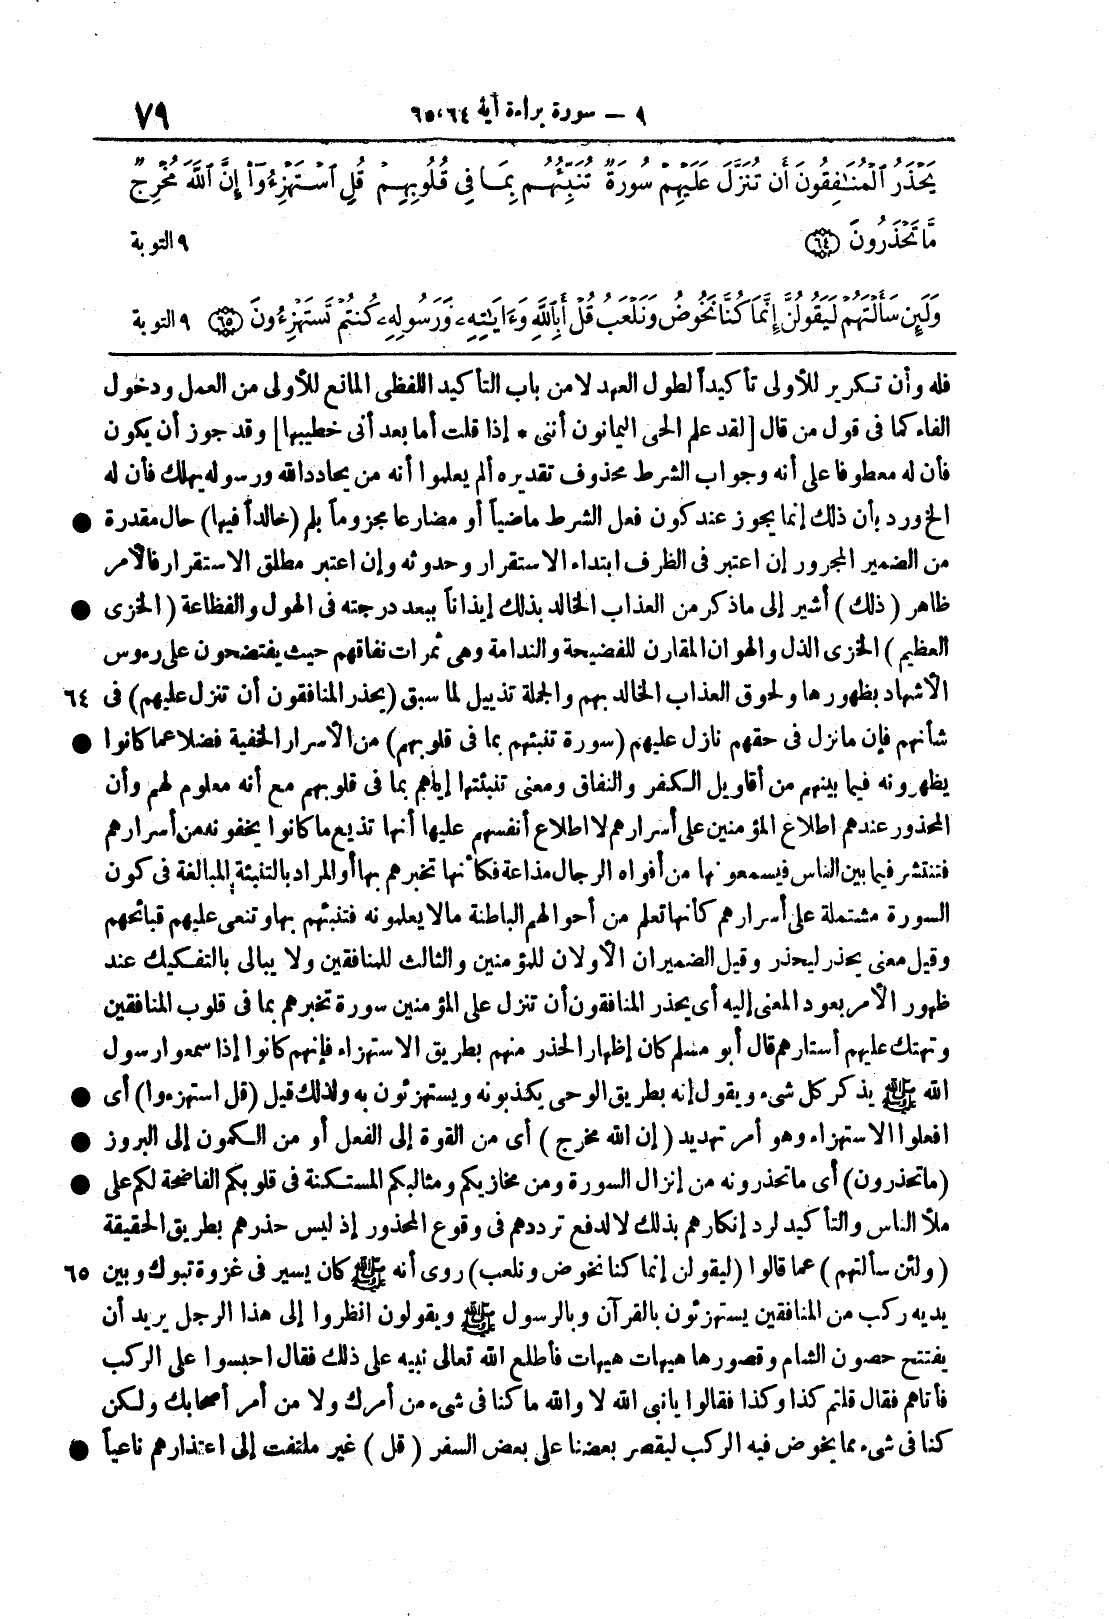 ٩ — سورة براءة آية ٦٤،٦٥ ٧٩
يَحْذَرُ ٱلْمُنَٰفِقُونَ أَن تُنَزَّلَ عَلَيْهِمْ سُورَةٌ تُنَبِّئُهُم بِمَا فِى قُلُوبِهِمْ قُلِ ٱسْتَهْزِءُوٓا۟ إِنَّ ٱللَّهَ مُخْرِجٌ
مَّا تَحْذَرُونَ ٦٤ ٩ التوبة
وَلَئِن سَأَلْتَهُمْ لَيَقُولُنَّ إِنَّمَا كُنَّا نَخُوضُ وَنَلْعَبُ قُلْ أَبِٱللَّهِ وَءَايَٰتِهِۦ وَرَسُولِهِۦ كُنتُمْ تَسْتَهْزِءُونَ ٦٥ ٩ التوبة
فله وأن تكرير للأولى تأكيداً لطول العهد لا من باب التأكيد اللفظى المانع للأولى من العمل ودخول
الفاء كما فى قول من قال [لقد علم الحى اليمانون أننى * إذا قلت أما بعد أنى خطيبها] وقد جوز أن يكون
فأن له معطوفا على أنه وجواب الشرط محذوف تقديره ألم يعلموا أنه من يحادد الله ورسوله يهلك فأن له
الخ ورد بأن ذلك إنما يجوز عند كون فعل الشرط ماضياً أو مضارعا مجزوماً بلم (خالداً فيها) حال مقدرة ●
من الضمير المجرور إن اعتبر فى الظرف ابتداء الاستقرار وحدوثه وإن اعتبر مطلق الاستقرار فالأمر
ظاهر (ذلك) أشير إلى ماذكر من العذاب الخالد بذلك إيذاناً ببعد درجته فى الهول والفظاعة (الخزى ●
العظيم) الخزى الذل والهوان المقارن للفضيحة والندامة وهى ثمرات نفاقهم حيث يفتضحون على رءوس
الأشهاد بظهورها ولحوق العذاب الخالد بهم والجملة تذييل لما سبق (يحذر المنافقون أن تنزل عليهم) فى ٦٤
شأنهم فإن مانزل فى حقهم نازل عليهم (سورة تنبئهم بما فى قلوبهم) من الأسرار الخفية فضلا عما كانوا ●
يظهرونه فيما بينهم من أقاويل الكفر والنفاق ومعنى تنبئتها إياهم بما فى قلوبهم مع أنه معلوم لهم وأن
المحذور عندهم اطلاع المؤمنين على أسرارهم لا اطلاع أنفسهم عليها أنها تذيع ما كانوا يخفونه من أسرارهم
فتنتشر فيما بين الناس فيسمعونها من أفواه الرجال مذاعة فكأنها تخبرهم بها أو المراد بالتنبئة المبالغة فى كون
السورة مشتملة على أسرارهم كأنها تعلم من أحوالهم الباطنة مالا يعلمونه فتنبئهم بها وتنعى عليهم قبائحهم
وقيل معنى يحذر ليحذر وقيل الضميران الأولان للمؤمنين والثالث للمنافقين ولا يبالى بالتفكيك عند
ظهور الأمر بعود المعنى إليه أى يحذر المنافقون أن تنزل على المؤمنين سورة تخبرهم بما فى قلوب المنافقين
وتهتك عليهم أستارهم قال أبو مسلم كان إظهار الحذر منهم بطريق الاستهزاء فإنهم كانوا إذا سمعوا رسول
الله ﷺ يذكر كل شىء ويقول إنه بطريق الوحى يكذبونه ويستهزئون به ولذلك قيل (قل استهزءوا) أى ●
افعلوا الاستهزاء وهو أمر تهديد (إن الله مخرج) أى من القوة إلى الفعل أو من الكمون إلى البروز ●
(ماتحذرون) أى ماتحذرونه من إنزال السورة ومن مخازيكم ومثالبكم المستكنة فى قلوبكم الفاضحة لكم على ●
ملأ الناس والتأكيد لرد إنكارهم بذلك لا لدفع ترددهم فى وقوع المحذور إذ ليس حذرهم بطريق الحقيقة
(ولئن سألتهم) عما قالوا (ليقولن إنما كنا نخوض ونلعب) روى أنه ﷺ كان يسير فى غزوة تبوك وبين ٦٥
يديه ركب من المنافقين يستهزئون بالقرآن وبالرسول ﷺ ويقولون انظروا إلى هذا الرجل يريد أن
يفتتح حصون الشام وقصورها هيهات هيهات فأطلع الله تعالى نبيه على ذلك فقال احبسوا على الركب
فأتاهم فقال قلتم كذا وكذا فقالوا يانبى الله لا والله ما كنا فى شىء من أمرك ولا من أمر أصحابك ولكن
كنا فى شىء مما يخوض فيه الركب ليقصر بعضنا على بعض السفر (قل) غير ملتفت إلى اعتذارهم ناعياً ●